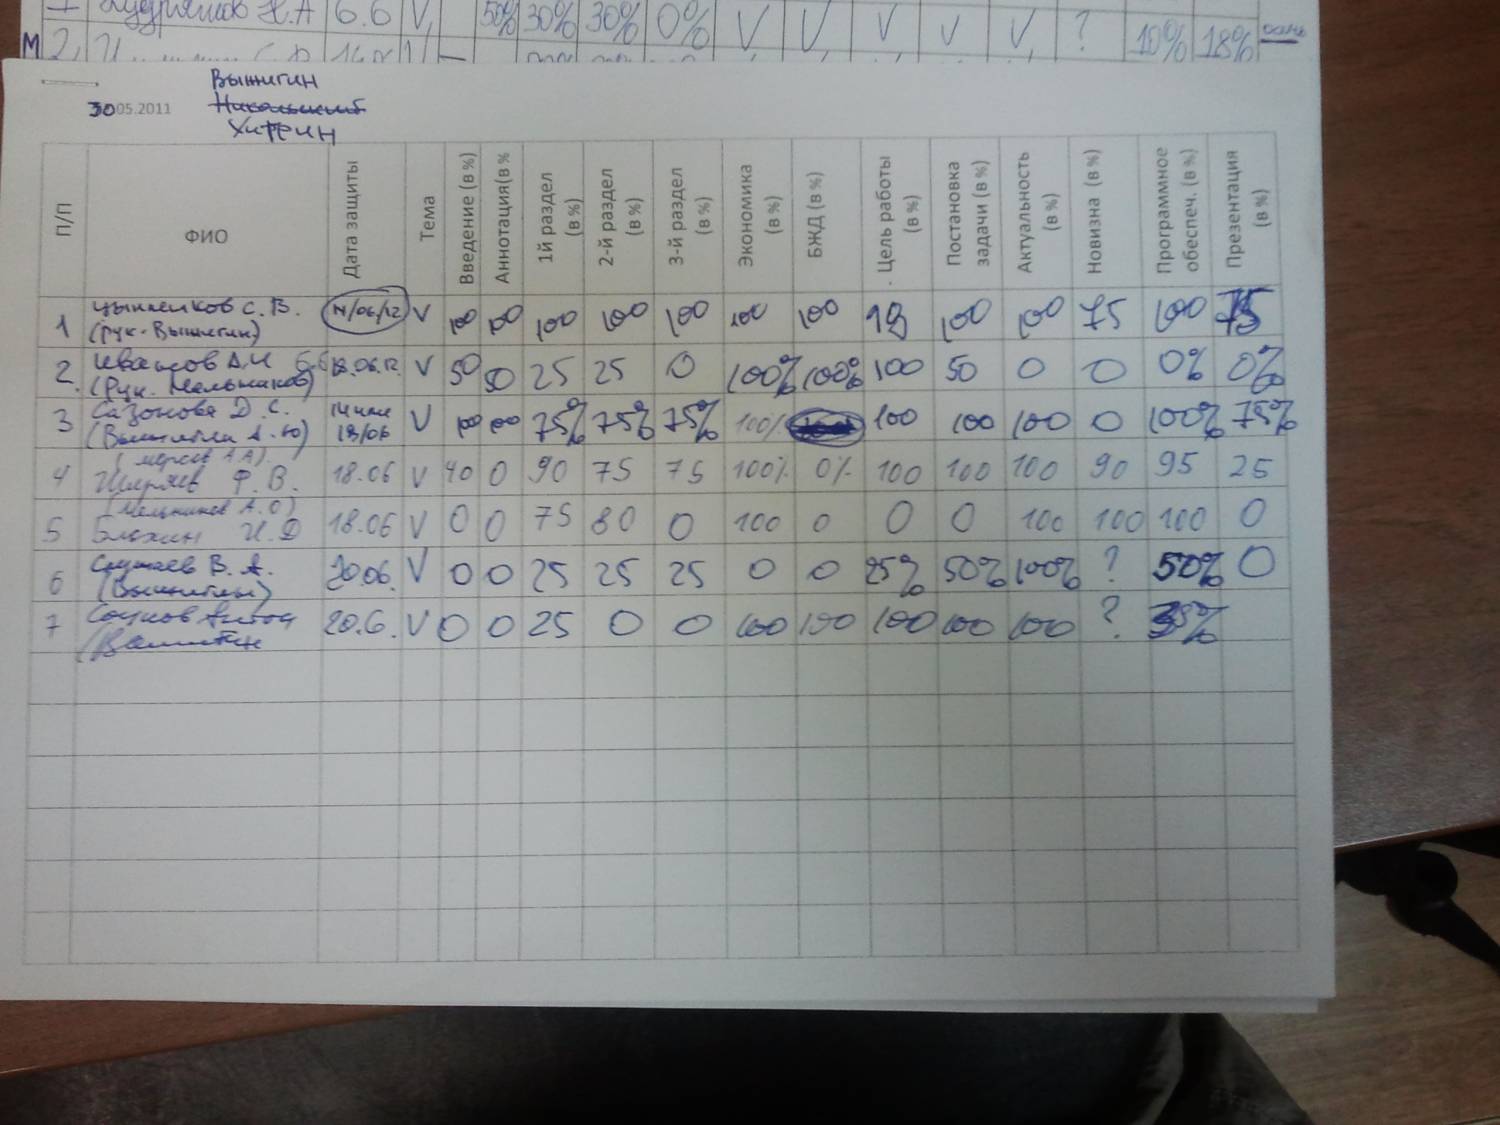 Н.А 6.6 V, 50% 30% 30% 0% V, V, V, V V, ? 10% 18%
М 2,
Выжигин
30 05.2011
Хитрин
П/П ФИО Дата защиты Тема Введение (в %) Аннотация(в % 1й раздел (в %) 2-й раздел (в %) 3-й раздел (в %) Экономика (в %) БЖД (в %) Цель работы (в %) Постановка задачи (в %) Актуальность (в %) Новизна (в %) Программное обеспеч. (в %) Презентация (в %)
1 С. В. 14/06/12 V 100 100 100 100 100 100 100 100 100 75 100 75
(рук. Выжигин)
2. 6.6 18.06.12 V 50 50 25 25 0 100% 100% 100 50 0 0 0% 0%
(Рук. Мельников)
3 Сазонова Д. С. 14 или V 100 100 75% 75% 75% 100% 100 100 100 0 100% 75%
(Выжигин А.Ю) 18/06
4 Ф. В. 18.06 V 40 0 90 75 75 100% 0% 100 100 100 90 95 25
(Мельников А.О)
5 И.Д 18.06 V 0 0 75 80 0 100 0 0 0 100 100 100 0
6 В. А. 20.06. V 0 0 25 25 25 0 0 25% 50% 100% ? 50% 0
(Выжигин)
7 Антон 20.6. V 0 0 25 0 0 100 100 100 100 100 ?